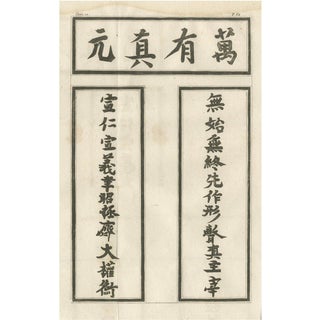 萬有真元
無始無終先作形聲真主宰
宣仁宣義聿昭拯濟大權衡